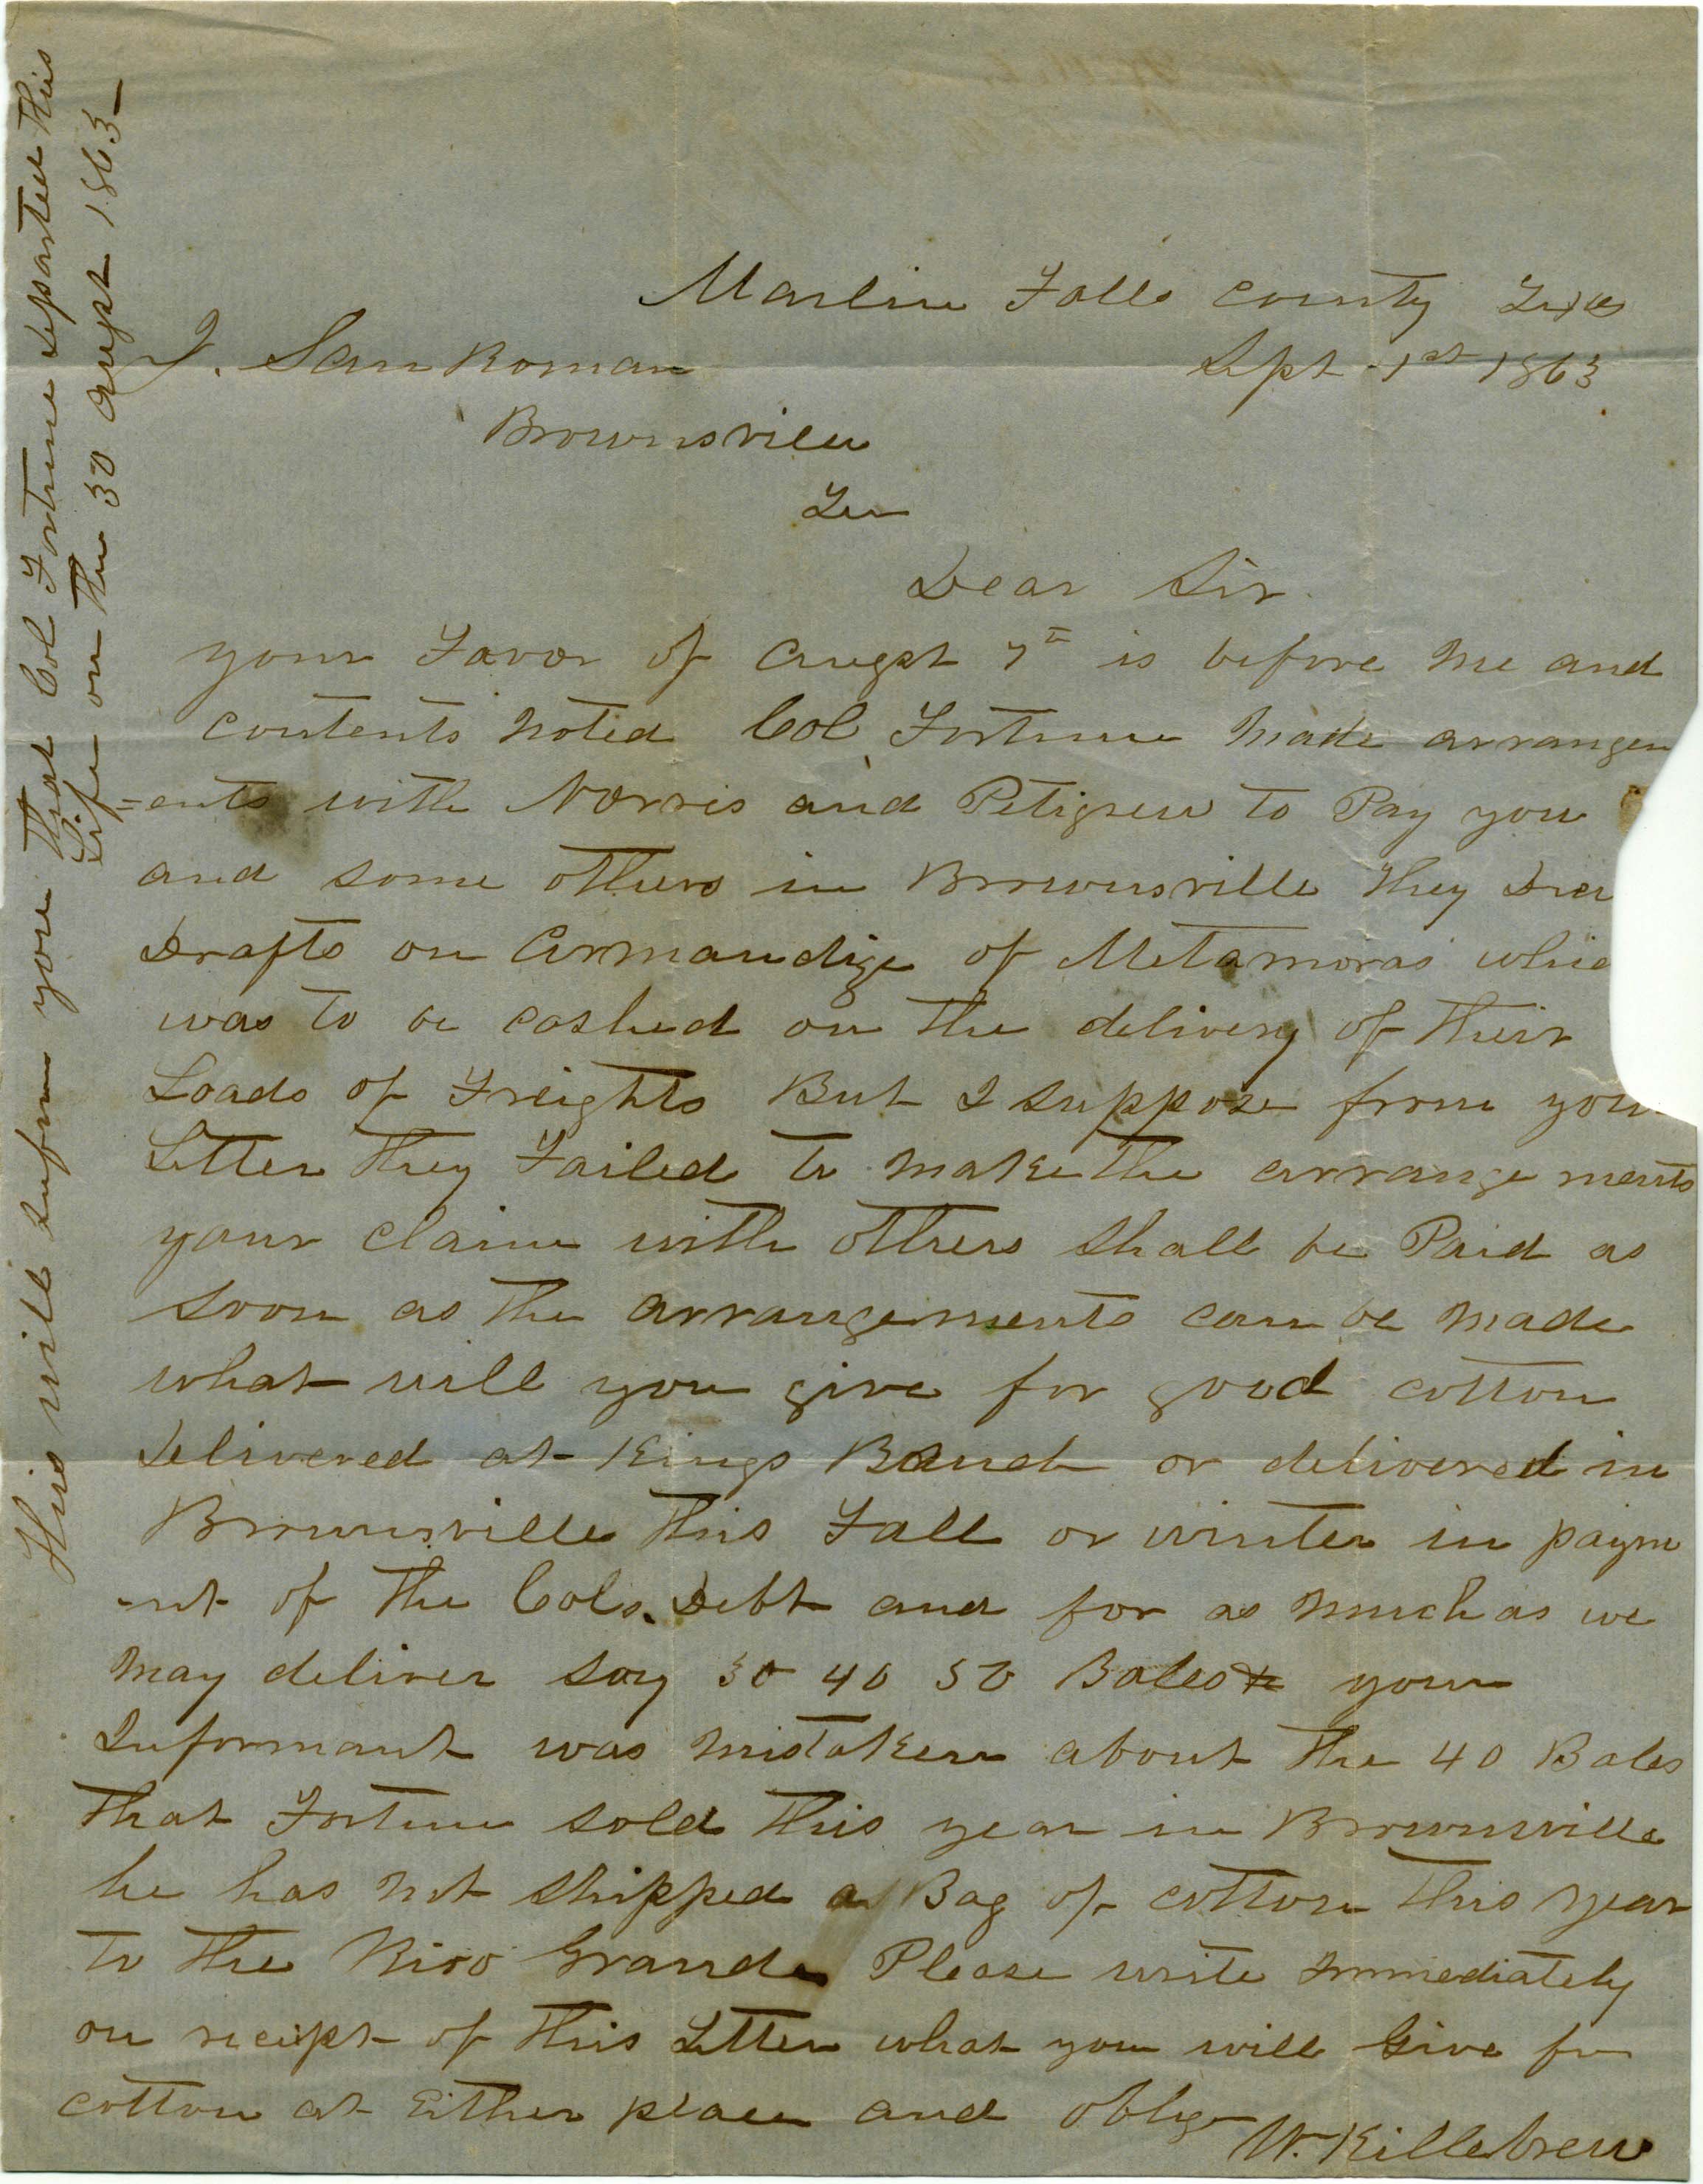 Marlin Falls County Texas
J. San Roman Sept 1st 1863
Brownsville
Tex
Dear Sir
your Favor of Augst 7th is before me and
contents noted Col Fortune made arrangem
=ents with Norris and Petigrew to Pay you
and some others in Brownsville They Drew
Drafts on Armandize of Metamoras whic
was to be cashed on the delivery of their
Loads of Freights But I suppose from you
Letter They Failed to make the arrangements
your claim with others shall be Paid as
soon as the arrangements can be made
what will you give for good cotton
Delivered at Kings Ranch or delivered in
Brownsville this Fall or winter in paym
-ent of the Cols. Debt and for as much as we
may deliver say 30 40 50 Bales your
Informant was mistaken about the 40 Bales
that Fortune sold this year in Brownsville
he has not shipped a Bag of cotton this year
to the Rioo Grande Please write Immediately
on reciept of this Letter what you will Give for
cotton at Either place and oblige
W. Killebrew
This will Inform you that Col Fortune departed this
Life on the 30 Augst 1863